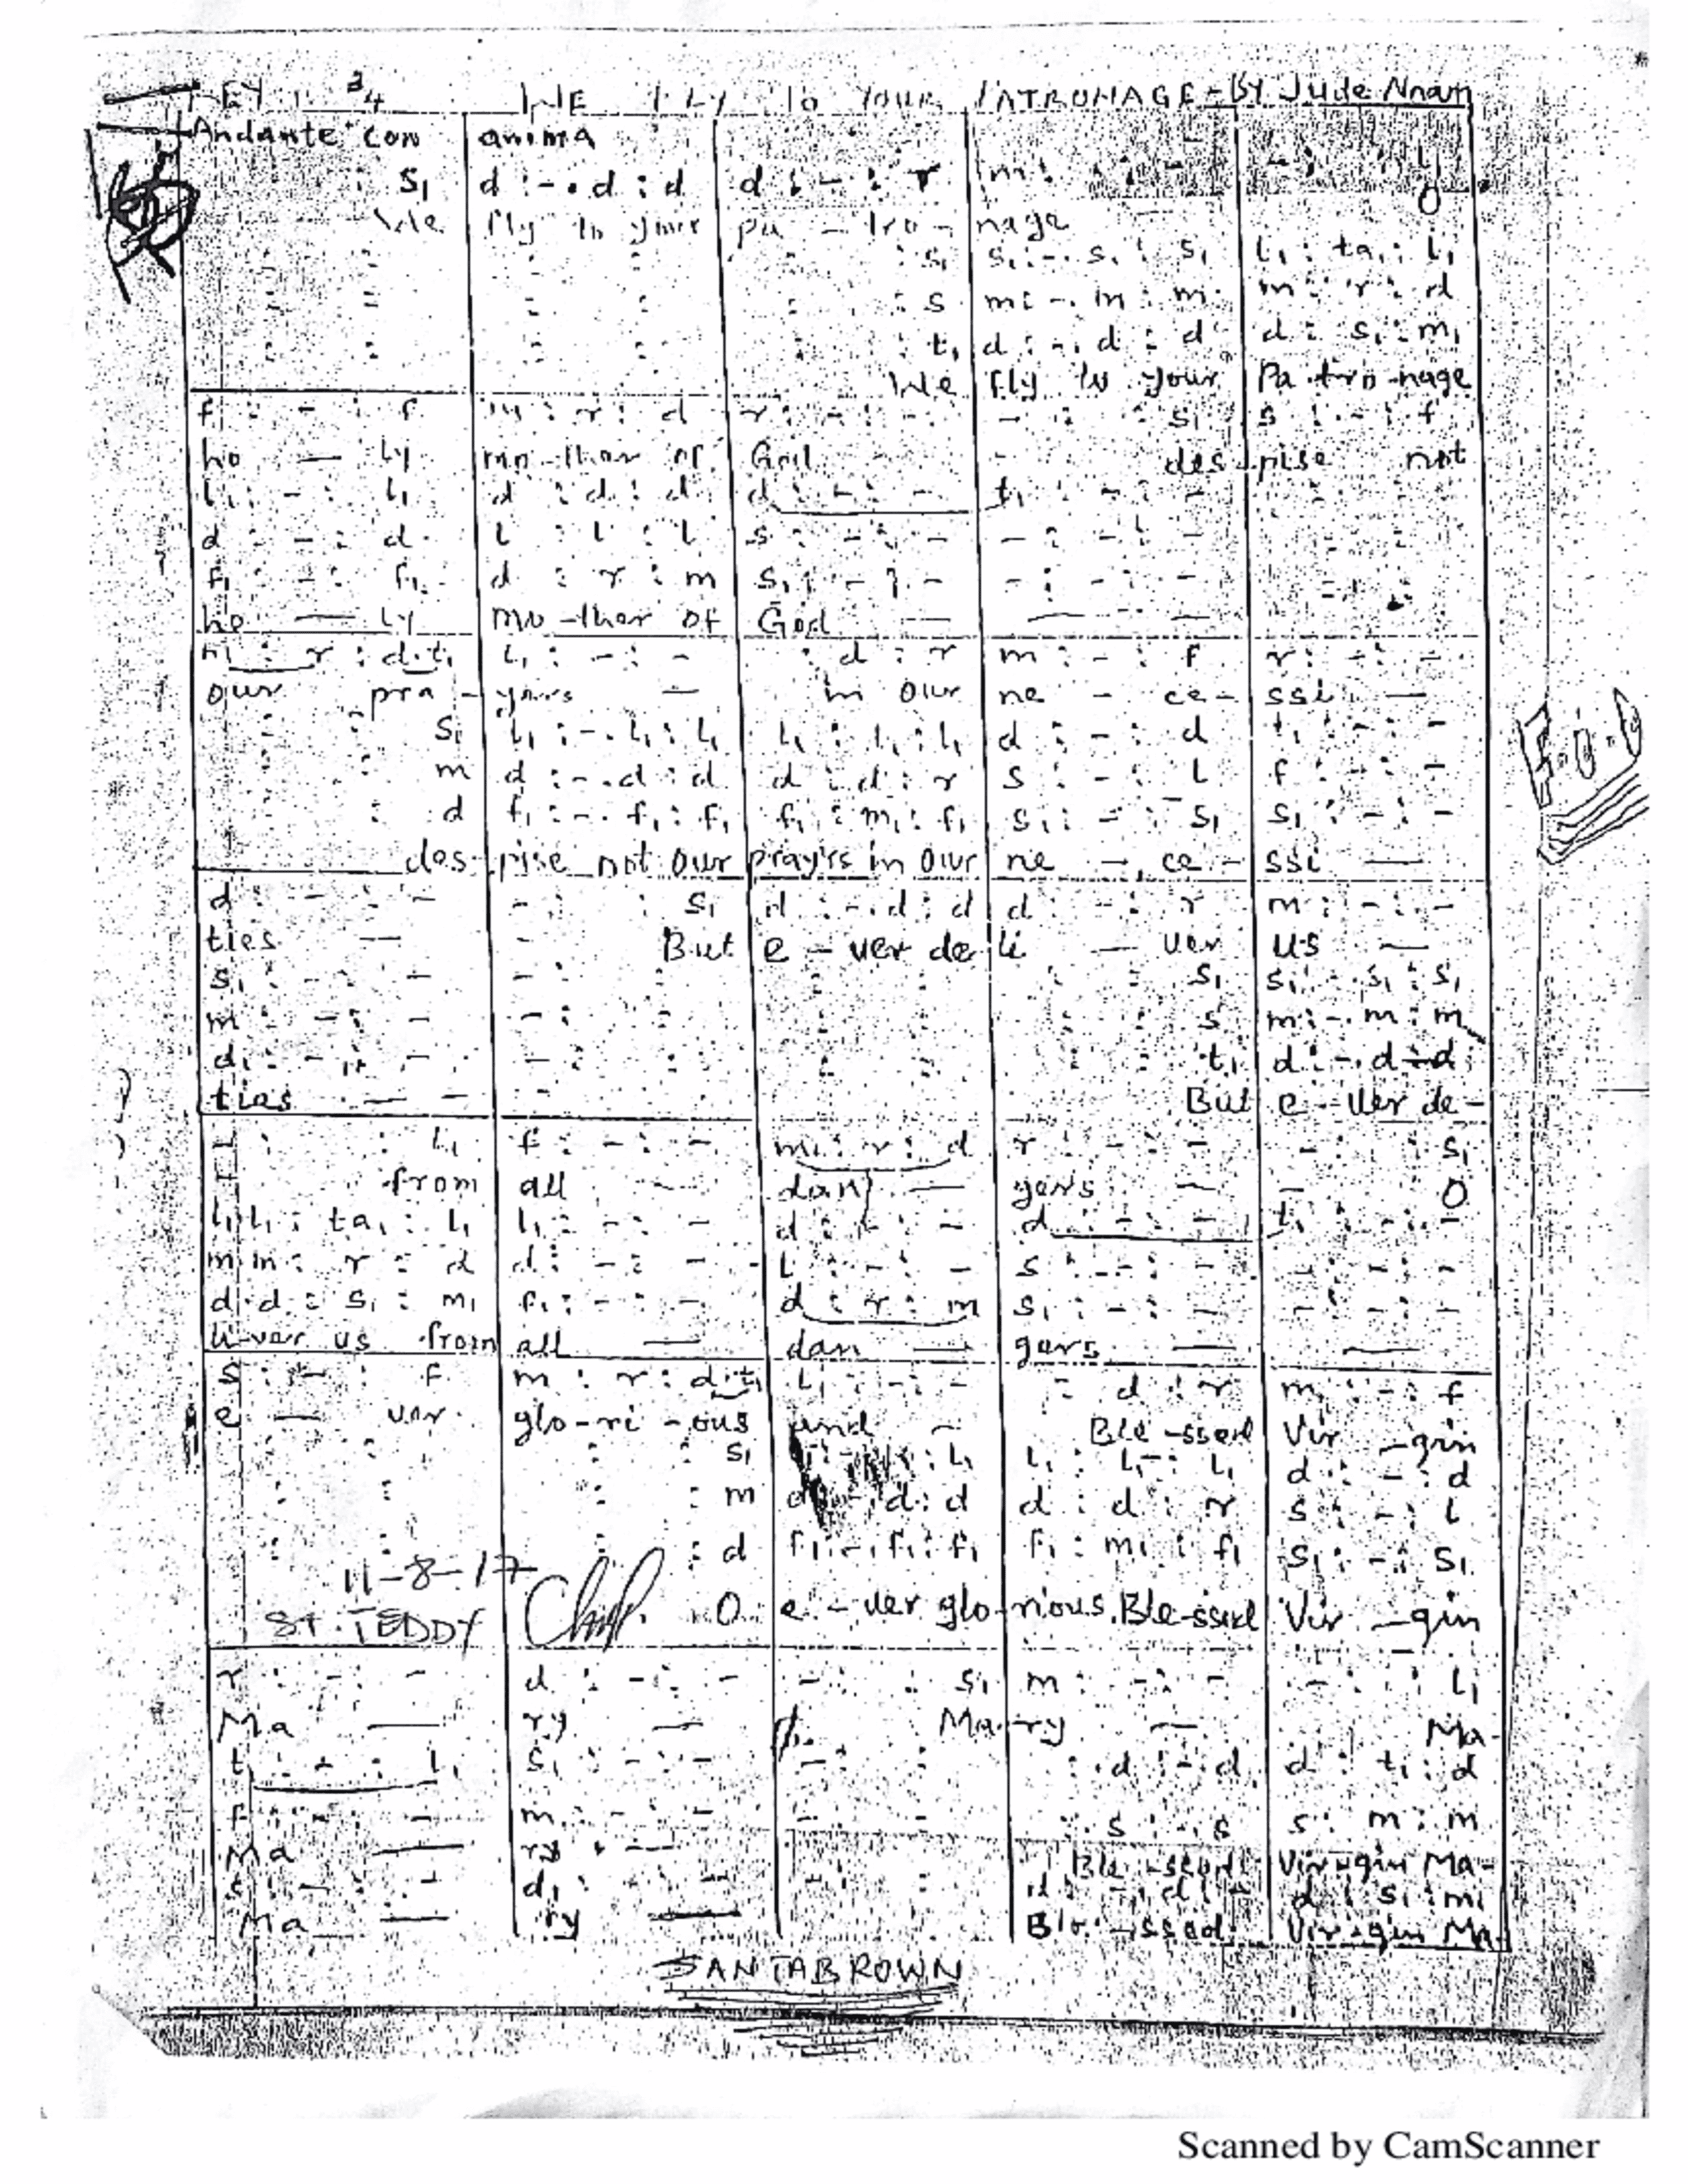 KEY 3/4 WE FLY TO YOUR PATRONAGE - By Jude Nnam
Andante con anima
: : s₁ | d :-.d : d | d : - : r | m : - : - | - : : l₁
We fly to your pa - tro - nage O
: : | : : | : : s₁ | s₁ :-. s₁ : s₁ | l₁ : ta₁ : l₁
: : | : : | : : s | m :-. m : m | m : r : d
: : | : : | : : t₁ | d :-. d : d | d : s₁ : m₁
We fly to your Pa-tro-nage
f : - : f | m : r : d | r : - : - | - : : s₁ | s : - : f
ho — ly mo-ther of God - des-pise not
l₁ : - : l₁ | d : d : d | d : - : - | t₁ : - : -
d : - : d | l : l : l | s : - : - | - : - : -
f₁ : - : f₁ | d : r : m | s₁ : - : - | - : - : -
ho — ly mo-ther of God — — —
m : r : d.t₁ | l₁ : - : - | : d : r | m : - : f | r : - : -
our pra - yers — in our ne - ce - ssi —
: : s₁ | l₁ :-. l₁ : l₁ | l₁ : l₁ : l₁ | d : - : d | t₁ : - : -
: : m | d :-. d : d | d : d : r | s : - : l | f : - : -
: : d | f₁ :-. f₁ : f₁ | f₁ : m₁ : f₁ | s₁ : - : s₁ | s₁ : - : -
des-pise not our pray'rs in our ne - ce - ssi —
F.O.O
d : - : - | - : : s₁ | d :-. d : d | d : - : r | m : - : -
ties — - But e - ver de li — ver us —
s₁ : - : - | - : : | : : | : : s₁ | s₁ :-. s₁ : s₁
m : - : - | - : : | : : | : : s | m :-. m : m
d₁ : - : - | - : : | : : | : : t₁ | d :-. d : d
ties — - - But e - ver de -
- : : l₁ | f : - : - | m : r : d | r : - : - | - : : s₁
from all — dan — gers — - O
l₁.l₁ : ta₁ : l₁ | l₁ : - : - | d : - : - | d : - : - | t₁ : - : -
m.m : r : d | d : - : - | l : - : - | s : - : - | - : - : -
d.d : s₁ : m₁ | f₁ : - : - | d : r : m | s₁ : - : - | - : - : -
li-ver us from all — dan — gers — —
s : - : f | m : r : d.t₁ | l₁ : - : - | : d : r | m : - : f
e — ver glo-ri-ous and - Ble-ssed Vir - gin
: : | : : s₁ | : l₁ | l₁ : l₁ : l₁ | d : - : d
: : | : : m | d :-. d : d | d : d : r | s : - : l
: : | : : d | f₁ :-. f₁ : f₁ | f₁ : m₁ : f₁ | s₁ : - : s₁
11-8-17
ST. TEDDY O e - ver glo-rious Ble-ssed Vir - gin
r : - : - | d : - : - | - : : s₁ | m : - : - | - : : l₁
Ma — ry — Ma-ry — Ma-
t₁ : - : l₁ | s₁ : - : - | - : : | : d : - . d | d : t₁ : d
f : - : - | m : - : - | - : : | : s : - . s | s : m : m
Ma — ry — Ble-ssed Vir-gin Ma-
s₁ : - : - | d₁ : - : - | - : : | d : s₁ : m₁
Ma — ry — Ble-ssed Vir-gin Ma-
SANTABROWN
Scanned by CamScanner